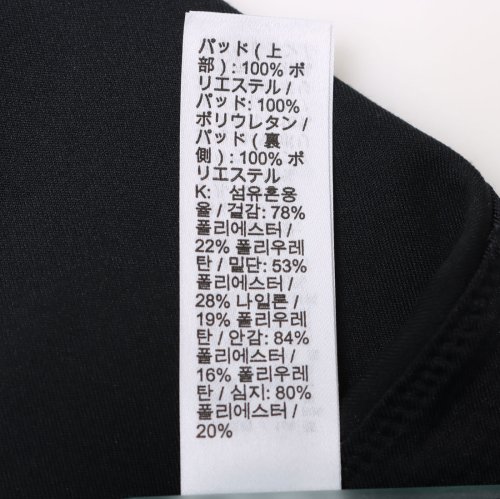 パッド ( 上
部 ) : 100% ポ
リエステル /
パッド: 100%
ポリウレタン /
パッド ( 裏
側 ) : 100% ポ
リエステル
K: 섬유혼용
율 / 겉감: 78%
폴리에스터 /
22% 폴리우레
탄 / 밑단: 53%
폴리에스터 /
28% 나일론 /
19% 폴리우레
탄 / 안감: 84%
폴리에스터 /
16% 폴리우레
탄 / 심지: 80%
폴리에스터 /
20%